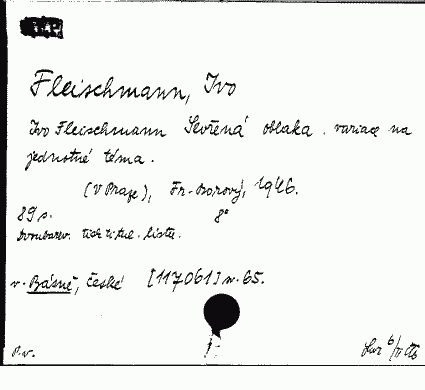 Fleischmann, Ivo
Ivo Fleischmann Sevřená oblaka. variace na
jednotné téma.
(V Praze), Fr. Borový, 1946.
89 s. 8°
Dvoubarev. tisk titul. listu.
v. Básně, české [117061] n. 65.
P.v.